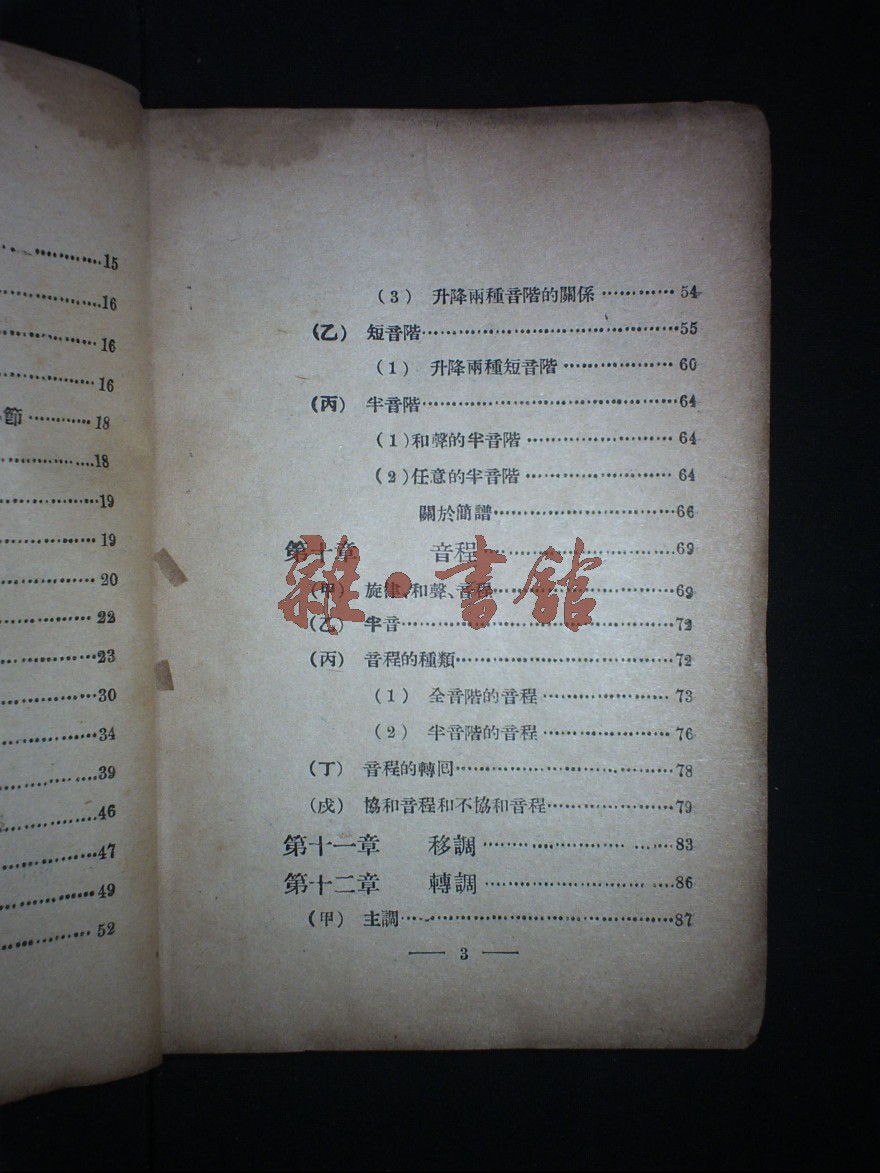 15
16
16
16
節 ………… 18
18
19
19
20
22
23
30
34
39
46
47
49
52
(3) 升降兩種音階的關係 ………… 54
(乙) 短音階 ………… 55
(1) 升降兩種短音階 ………… 60
(丙) 半音階 ………… 64
(1)和聲的半音階 ………… 64
(2)任意的半音階 ………… 64
關於簡譜 ………… 66
第十章 音程 ………… 69
(甲) 旋律、和聲、音程 ………… 69
(乙) 半音 ………… 72
(丙) 音程的種類 ………… 72
(1) 全音階的音程 ………… 73
(2) 半音階的音程 ………… 76
(丁) 音程的轉回 ………… 78
(戌) 協和音程和不協和音程 ………… 79
第十一章 移調 ………… 83
第十二章 轉調 ………… 86
(甲) 主調 ………… 87
— 3 —
雜·書館